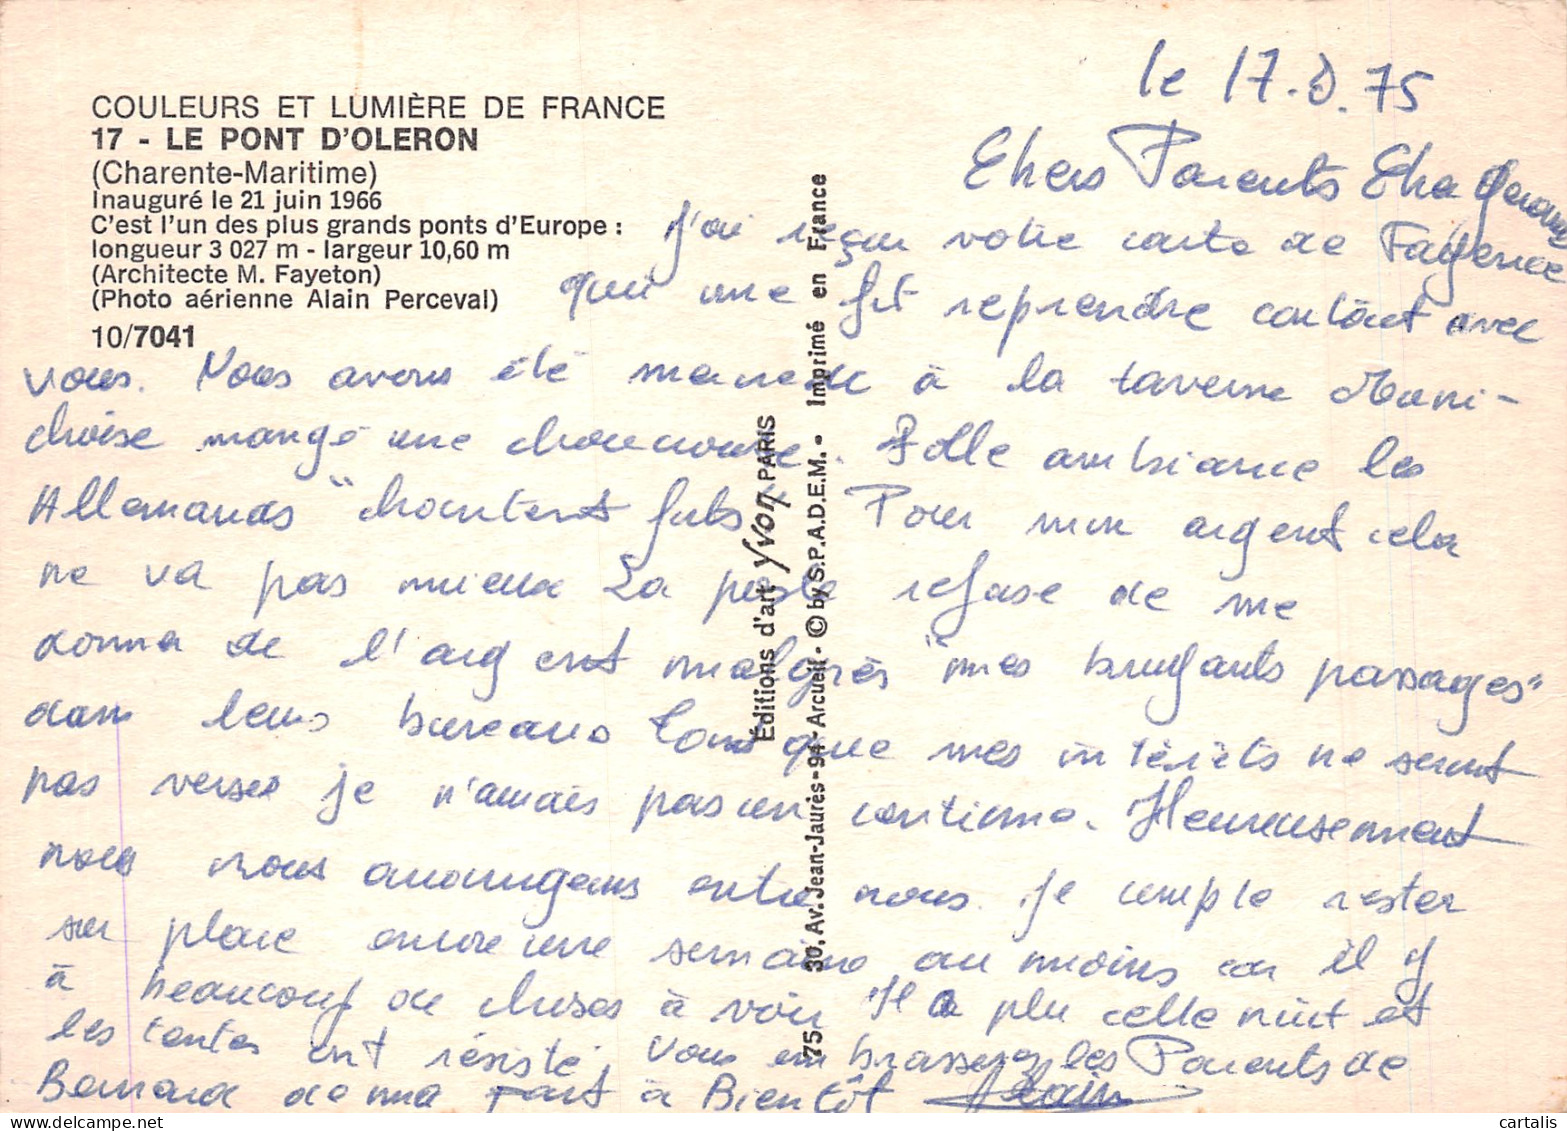 COULEURS ET LUMIÈRE DE FRANCE
17 - LE PONT D'OLERON
(Charente-Maritime)
Inauguré le 21 juin 1966
C'est l'un des plus grands ponts d'Europe :
longueur 3 027 m - largeur 10,60 m
(Architecte M. Fayeton)
(Photo aérienne Alain Perceval)
10/7041
le 17.8.75
Chers Parents
j'ai reçu votre carte de Fayence
qui me fit reprendre contact avec
vous. Nous avons été mercredi à la taverne Muni-
choise mangé une choucroute. Folle ambiance les
Allemands "chantent futs" Pour mon argent cela
ne va pas mieux La poste refuse de me
donna de l'argent malgrès "mes bruyants passages"
dans leurs bureaux tant que mes intérêts ne seront
pas versée je n'aurais pas un centime. Heureusement
nous nous arrangeons entre nous. je compte rester
sur place encore une semaine au moins car il y
à beaucoup de choses à voir Il a plu celle nuit et
les tentes ont résisté, Vous embrasserez les Parents de
Bernard de ma part à Bientôt Alain
Éditions d'art Yvon PARIS
75 30, Av. Jean-Jaurès - 94 - Arcueil - © by S.P.A.D.E.M. • Imprimé en France
cartalis